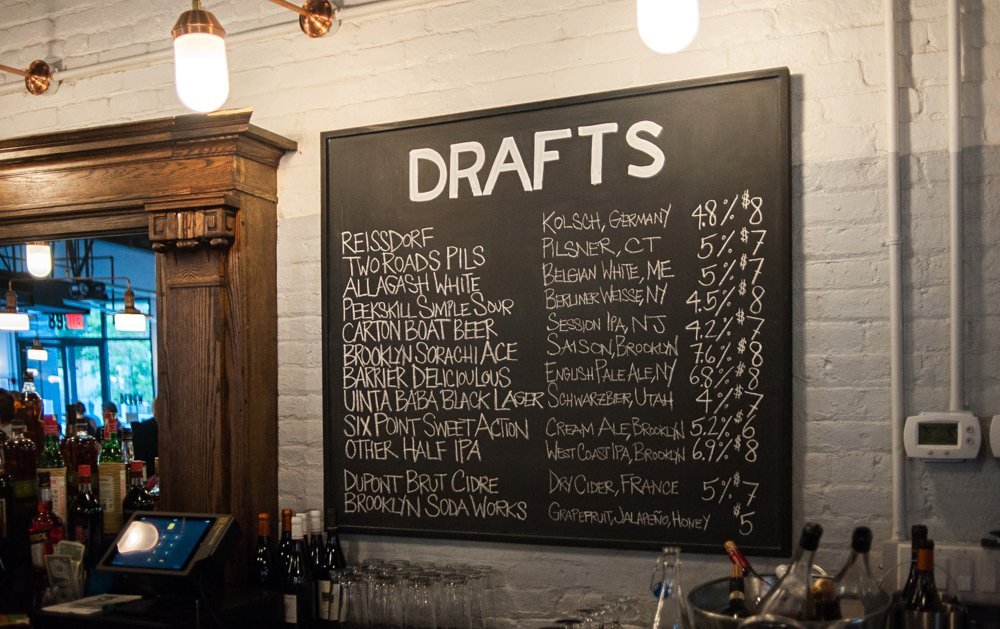 DRAFTS
REISSDORF KOLSCH, GERMANY 4.8% $8
TWO ROADS PILS PILSNER, CT 5% $7
ALLAGASH WHITE BELGIAN WHITE, ME 5% $7
PEEKSKILL SIMPLE SOUR BERLINER WEISSE, NY 4.5% $8
CARTON BOAT BEER SESSION IPA, NJ 4.2% $7
BROOKLYN SORACHI ACE SAISON, BROOKLYN 7.6% $8
BARRIER DELICIOULOUS ENGLISH PALE ALE, NY 6.8% $8
UINTA BABA BLACK LAGER SCHWARZBIER, UTAH 4% $7
SIX POINT SWEET ACTION CREAM ALE, BROOKLYN 5.2% $6
OTHER HALF IPA WEST COAST IPA, BROOKLYN 6.9% $8
DUPONT BRUT CIDRE DRY CIDER, FRANCE 5% $7
BROOKLYN SODA WORKS GRAPEFRUIT, JALAPEÑO, HONEY $5